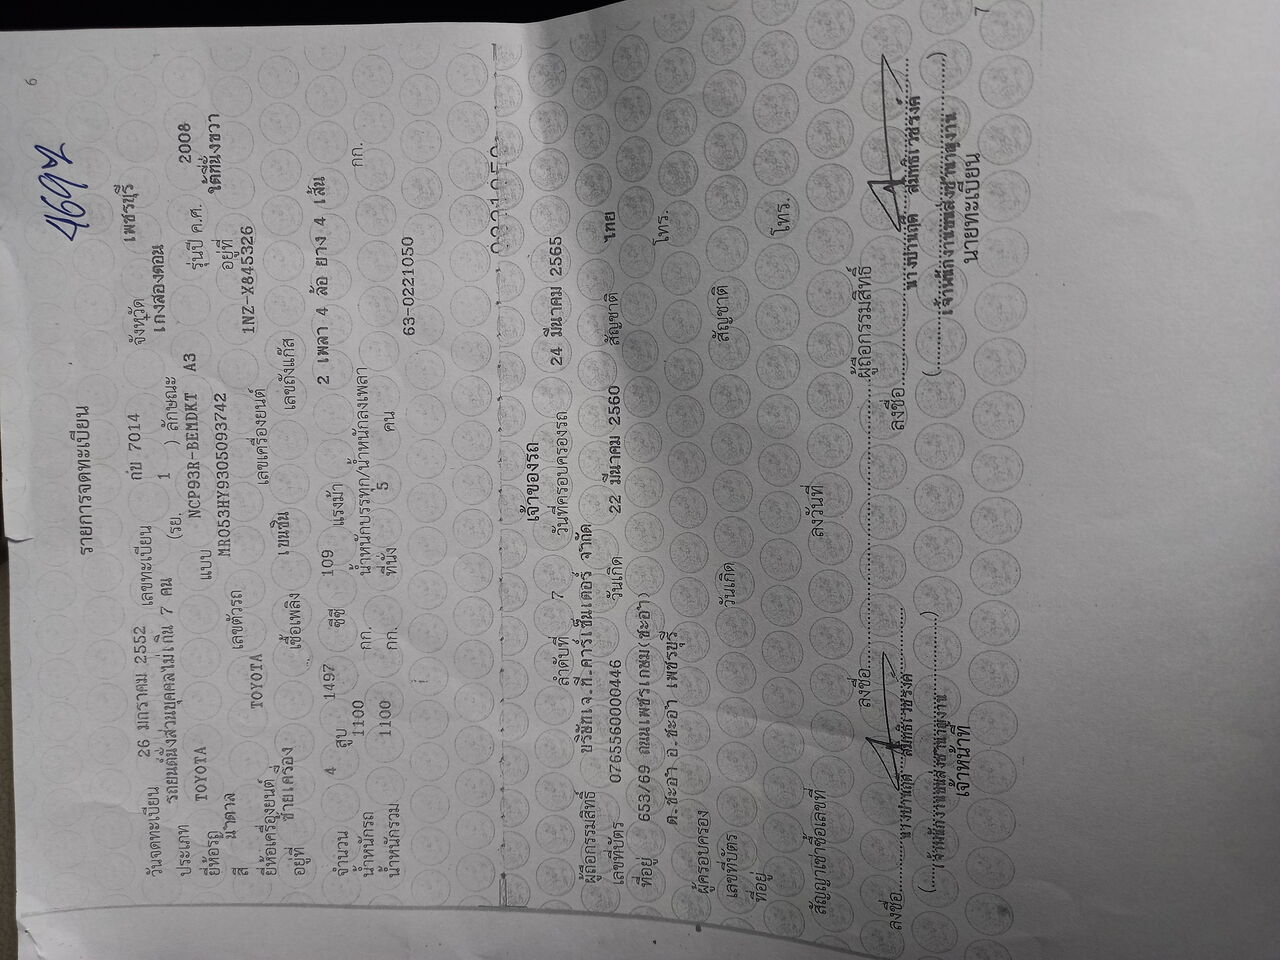 6
469 ฯ
รายการจดทะเบียน
วันจดทะเบียน 26 มกราคม 2552 เลขทะเบียน กข 7014 จังหวัด เพชรบุรี
ประเภท รถยนต์นั่งส่วนบุคคลไม่เกิน 7 คน (รย. 1 ) ลักษณะ เก๋งสองตอน
ยี่ห้อรถ TOYOTA แบบ NCP93R-BEMDKT A3 รุ่นปี ค.ศ. 2008
สี น้ำตาล เลขตัวรถ MR053HY9305093742 อยู่ที่ ใต้ที่นั่งขวา
ยี่ห้อเครื่องยนต์ TOYOTA เลขเครื่องยนต์ 1NZ-X845326
อยู่ที่ ซ้ายเครื่อง เชื้อเพลิง เบนซิน เลขถังแก๊ส
จำนวน 4 สูบ 1497 ซีซี 109 แรงม้า 2 เพลา 4 ล้อ ยาง 4 เส้น
น้ำหนักรถ 1100 กก. น้ำหนักบรรทุก/น้ำหนักลงเพลา กก.
น้ำหนักรวม 1100 กก. ที่นั่ง 5 คน
63-0221050
เจ้าของรถ
ลำดับที่ 7 วันที่ครอบครองรถ 24 มีนาคม 2565
ผู้ถือกรรมสิทธิ์ บริษัทเจ.ที.คาร์เซ็นเตอร์ จำกัด
เลขที่บัตร 0765560000446 วันเกิด 22 มีนาคม 2560 สัญชาติ ไทย
ที่อยู่ 653/69 ถนนเพชรเกษม(ชะอำ)
ต.ชะอำ อ.ชะอำ เพชรบุรี โทร.
ผู้ครอบครอง
เลขที่บัตร วันเกิด สัญชาติ
ที่อยู่
โทร.
สัญญาเช่าซื้อเลขที่ ลงวันที่
ลงชื่อ ผู้ถือกรรมสิทธิ์
ลงชื่อ ลงชื่อ
เจ้าหน้าที่ นายทะเบียน
7